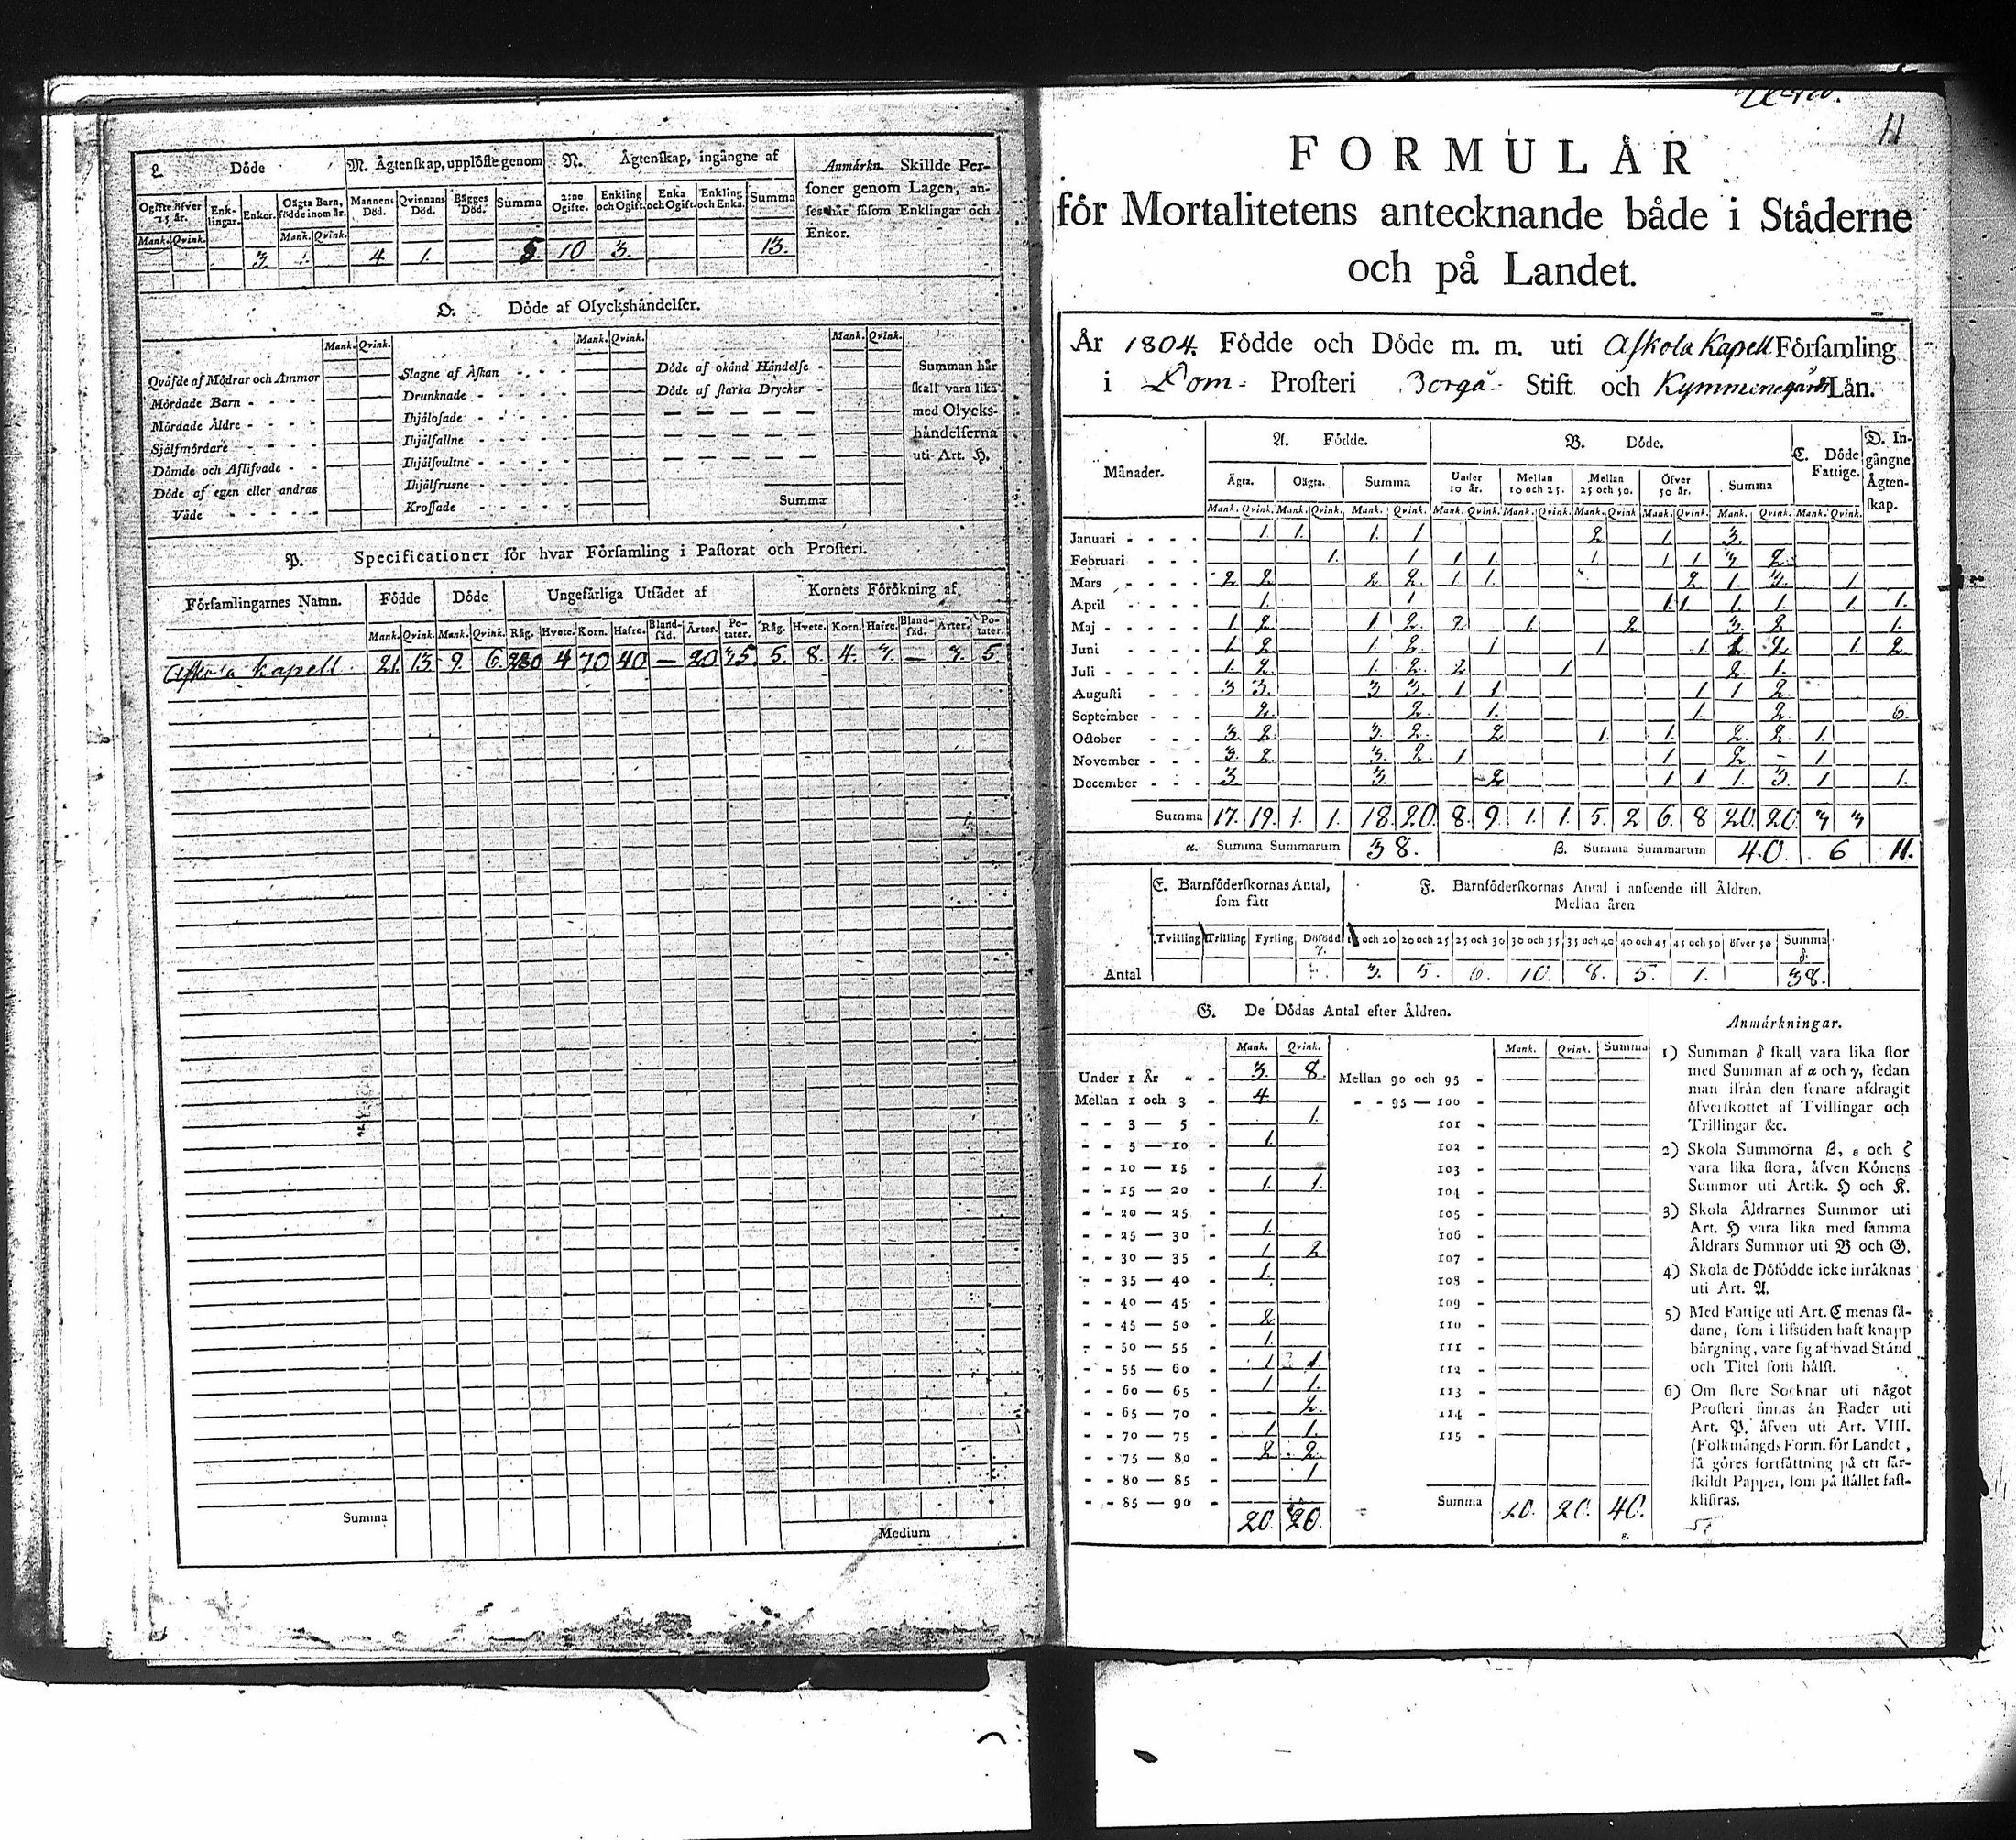 L. Döde
M. Ägtenskap, upplöste genom
N. Ägtenskap, ingångne af
Anmärkn. Skillde Per-
soner genom Lagen, an-
ses här såsom Enklingar och
Enkor.
Ogifte öfver 25 år. Enk-lingar. Enkor. Oägta Barn, födde inom år. Mannens Död. Qvinnans Död. Bägges Död. Summa 2:ne Ogifte. Enkling och Ogift. Enka och Ogift. Enkling och Enka. Summa
Mank. Qvink. Mank. Qvink.
3. 1. 4 1. 5. 10 3. 13.
O. Döde af Olyckshändelser.
Mank. Qvink. Mank. Qvink. Mank. Qvink.
Qväfde af Mödrar och Ammor
Mördade Barn
Mördade Äldre
Själfmördare
Dömde och Aflifvade
Döde af egen eller andras
Våde
Slagne af Åskan
Drunknade
Ihjälosade
Ihjälfallne
Ihjälsvultne
Ihjälfrusne
Krossade
Döde af okänd Händelse
Döde af starka Drycker
Summa
Summan här
skall vara lika
med Olycks-
händelserna
uti Art. H.
P. Specificationer för hvar Församling i Pastorat och Prosteri.
Församlingarnes Namn. Födde Döde Ungefärliga Utsädet af Kornets Förökning af
Mank. Qvink. Mank. Qvink. Råg. Hvete. Korn. Hafre. Bland-säd. Ärter. Po-tater. Råg. Hvete. Korn. Hafre. Bland-säd. Ärter. Po-tater.
Askola Kapell 21. 13 9 6 4 70 40 — 20 35 5. 8. 4. 3. — 3. 5.
Summa
Medium
11
FORMULÄR
för Mortalitetens antecknande både i Städerne
och på Landet.
År 1804. Födde och Döde m. m. uti Askola Kapell Församling
i Dom- Prosteri Borgå Stift och Kymmenegårds Län.
Månader. A. Födde. B. Döde. C. Döde Fattige. D. In-gångne Ägten-skap.
Ägta. Oägta. Summa Under 10 år. Mellan 10 och 25. Mellan 25 och 50. Öfver 50 år. Summa
Mank. Qvink. Mank. Qvink. Mank. Qvink. Mank. Qvink. Mank. Qvink. Mank. Qvink. Mank. Qvink. Mank. Qvink. Mank. Qvink.
Januari 1. 1. 1. 1 2 1. 3.
Februari 1. 1 1 1. 1. 1 1 3. 2.
Mars 2 2 2 2. 1 1. 2 1. 3. 1
April 1. 1 1. 1 1. 1. 1. 1.
Maj 1 2 1. 2. 2 1. 2 3 2 1.
Juni 1 2 1. 2. 1 1 1 2. 1. 2
Juli 1. 2 1. 2 2 1 2. 1.
Augusti 3 3. 3 3. 1 1 1 1 2.
September 2. 2. 1. 1. 2. 6.
October 3. 2 3. 2. 2 1 1. 2. 2. 1.
November 3. 2. 3. 2. 1 1 2. - 1
December 3 3. 2 1 1 1. 3. 1 1.
Summa 17. 19. 1. 1. 18. 20. 8. 9. 1. 1. 5. 2 6. 8 20. 20. 3 3
α. Summa Summarum 38. β. Summa Summarum 40. 6 11.
E. Barnföderskornas Antal, som fått
F. Barnföderskornas Antal i anseende till Åldren.
Mellan åren
Tvilling Trilling Fyrling Dödfödd γ. och 20 20 och 25 25 och 30 30 och 35 35 och 40 40 och 45 45 och 50 öfver 50 Summa δ.
Antal 3. 5. 6. 10. 8. 5. 1. 38.
G. De Dödas Antal efter Åldren.
Mank. Qvink. Mank. Qvink. Summa
Under 1 År 3. 8. Mellan 90 och 95
Mellan 1 och 3 4. 95 — 100
3 — 5 1. 101
5 — 10 1. 102
10 — 15 103
15 — 20 1. 1. 104
20 — 25 105
25 — 30 1. 106
30 — 35 1 2 107
35 — 40 1. 108
40 — 45 109
45 — 50 2 110
50 — 55 1. 111
55 — 60 1 1. 112
60 — 65 1 1. 113
65 — 70 2. 114
70 — 75 1 1. 115
75 — 80 2 2.
80 — 85 1
85 — 90 Summa 20. 20. 40.
20. 20. ε.
Anmärkningar.
1) Summan δ skall vara lika stor
med Summan af α och γ, sedan
man ifrån den senare afdragit
öfverskottet af Tvillingar och
Trillingar &c.
2) Skola Summorna β, ε och ζ
vara lika stora, äfven Könens
Summor uti Artik. H och K.
3) Skola Åldrarnes Summor uti
Art. H vara lika med samma
Åldrars Summor uti B och G.
4) Skola de Dödfödde icke inräknas
uti Art. A.
5) Med Fattige uti Art. C menas så-
dane, som i lifstiden haft knapp
bärgning, vare sig af hvad Stånd
och Titel som hälst.
6) Om flere Socknar uti något
Prosteri finnas än Rader uti
Art. P. äfven uti Art. VIII.
(Folkmängds Form. för Landet,
så göres fortsättning på ett sär-
skildt Papper, som på stället fast-
klistras.